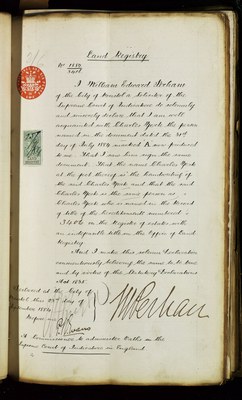 Land Registry
No 1650
I William Edward Perham
of the City of Bristol a Solicitor of the
Supreme Court of Judicature do solemnly
and sincerely declare that I am well
acquainted with Charles York the person
named in the document dated the 31st
day of July 1884 marked A now produced
to me. That I saw him sign the same
document. That the name Charles York
at the foot thereof is the handwriting of
the said Charles York and that the said
Charles York is the same person as
Charles York who is named in the Record
of title of the hereditaments numbered
1650 on the Register of estates with
an indefeasible title in the Office of Land
Registry
And I make this solemn Declaration
conscientiously believing the same to be true
and by virtue of the Statutory Declarations
Act 1835
Declared at the City of
Bristol this day of
1884
Before me
W Perham
A Commissioner to administer Oaths in the
Supreme Court of Judicature in England